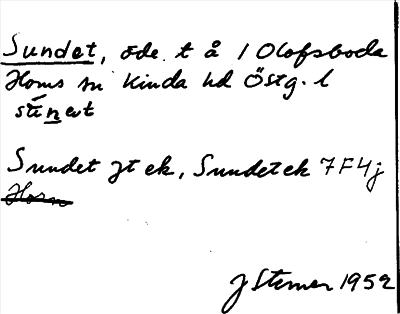 Sundet, öde. t å 1 Olofsboda
Horns sn Kinda hd Östg. l
súnevt
Sundet jt ek, Sundet ek 7F4j
Horn
J Sterner 1952